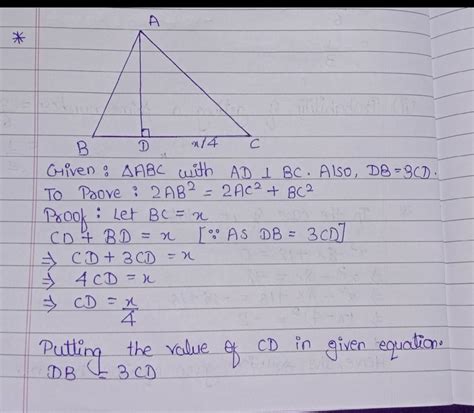 *
A
B
D
x/4
C
Given : ΔABC with AD ⊥ BC. Also, DB = 3CD.
To Prove : 2AB² = 2AC² + BC²
Proof : Let BC = x
CD + BD = x [∵ AS DB = 3CD]
⇒ CD + 3CD = x
⇒ 4CD = x
⇒ CD = x/4
Putting the value of CD in given equation.
DB = 3CD